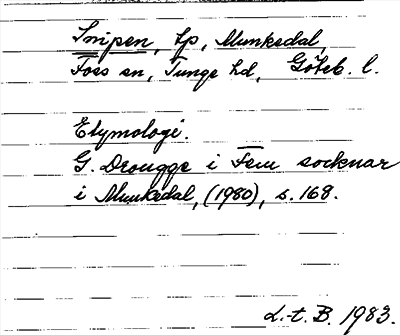 Snipen, Lp, Munkedal,
Foss sn, Tunge hd, Göteb. l.
Etymologi.
G. Drougge i Fem socknar
i Munkedal, (1980), s. 168.
L.-t. B. 1983.